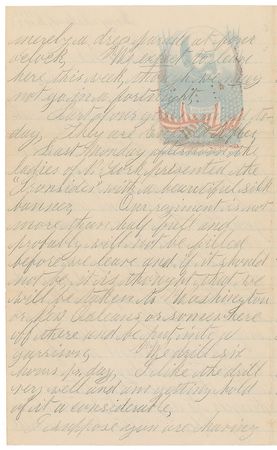 merely a dress parade at four
oclock, We expect to leave
here this week, though we may
not go in a fortnight.
Part of our guns came to-
day, They are
Last Monday afternoon the
ladies of N. York presented the
with a beautiful silk
banner, Our regiment is not
more than half full and
probably will not be filled
before we leave and if it should
not be, it is thought that we
will be taken to Washington
or New Orleans or somewhere
off there and be put into a
garrison, We drill six
hours pr. day, I like the drill
very well and am getting hold
of it a considerable,
I suppose you are having